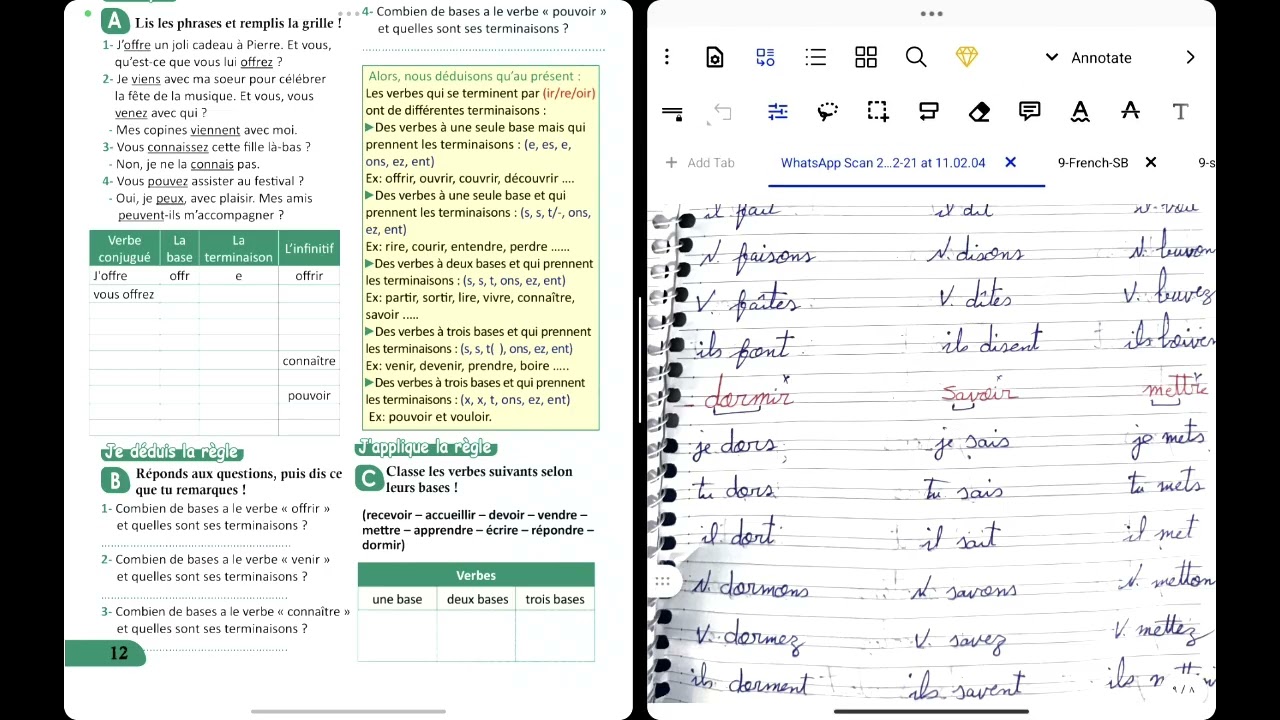 A Lis les phrases et remplis la grille !
1- J'offre un joli cadeau à Pierre. Et vous,
qu'est-ce que vous lui offrez ?
2- Je viens avec ma soeur pour célébrer
la fête de la musique. Et vous, vous
venez avec qui ?
- Mes copines viennent avec moi.
3- Vous connaissez cette fille là-bas ?
- Non, je ne la connais pas.
4- Vous pouvez assister au festival ?
- Oui, je peux, avec plaisir. Mes amis
peuvent-ils m'accompagner ?
Verbe conjugué La base La terminaison L'infinitif
J'offre offr e offrir
vous offrez
connaître
pouvoir
Je déduis la règle
B Réponds aux questions, puis dis ce
que tu remarques !
1- Combien de bases a le verbe « offrir »
et quelles sont ses terminaisons ?
2- Combien de bases a le verbe « venir »
et quelles sont ses terminaisons ?
3- Combien de bases a le verbe « connaître »
et quelles sont ses terminaisons ?
12
4- Combien de bases a le verbe « pouvoir »
et quelles sont ses terminaisons ?
Alors, nous déduisons qu'au présent :
Les verbes qui se terminent par (ir/re/oir)
ont de différentes terminaisons :
►Des verbes à une seule base mais qui
prennent les terminaisons : (e, es, e,
ons, ez, ent)
Ex: offrir, ouvrir, couvrir, découvrir ....
►Des verbes à une seule base et qui
prennent les terminaisons : (s, s, t/-, ons,
ez, ent)
Ex: rire, courir, entendre, perdre ......
►Des verbes à deux bases et qui prennent
les terminaisons : (s, s, t, ons, ez, ent)
Ex: partir, sortir, lire, vivre, connaître,
savoir .....
►Des verbes à trois bases et qui prennent
les terminaisons : (s, s, t( ), ons, ez, ent)
Ex: venir, devenir, prendre, boire .....
►Des verbes à trois bases et qui prennent
les terminaisons : (x, x, t, ons, ez, ent)
Ex: pouvoir et vouloir.
J'applique la règle
C Classe les verbes suivants selon
leurs bases !
(recevoir – accueillir – devoir – vendre –
mettre – apprendre – écrire – répondre –
dormir)
Verbes
une base deux bases trois bases
Annotate
T
Add Tab WhatsApp Scan 2...2-21 at 11.02.04 9-French-SB 9-s
il fait il dit
N. faisons N. disons N. buvon
V. faîtes V. dîtes V. buvez
ils font ils disent ils boiven
dormir savoir mettre
je dors je sais je mets
tu dors tu sais tu mets
il dort il sait il met
N. dormons N. savons N. metton
V. dormez V. savez V mettez
ils dorment ils savent ils